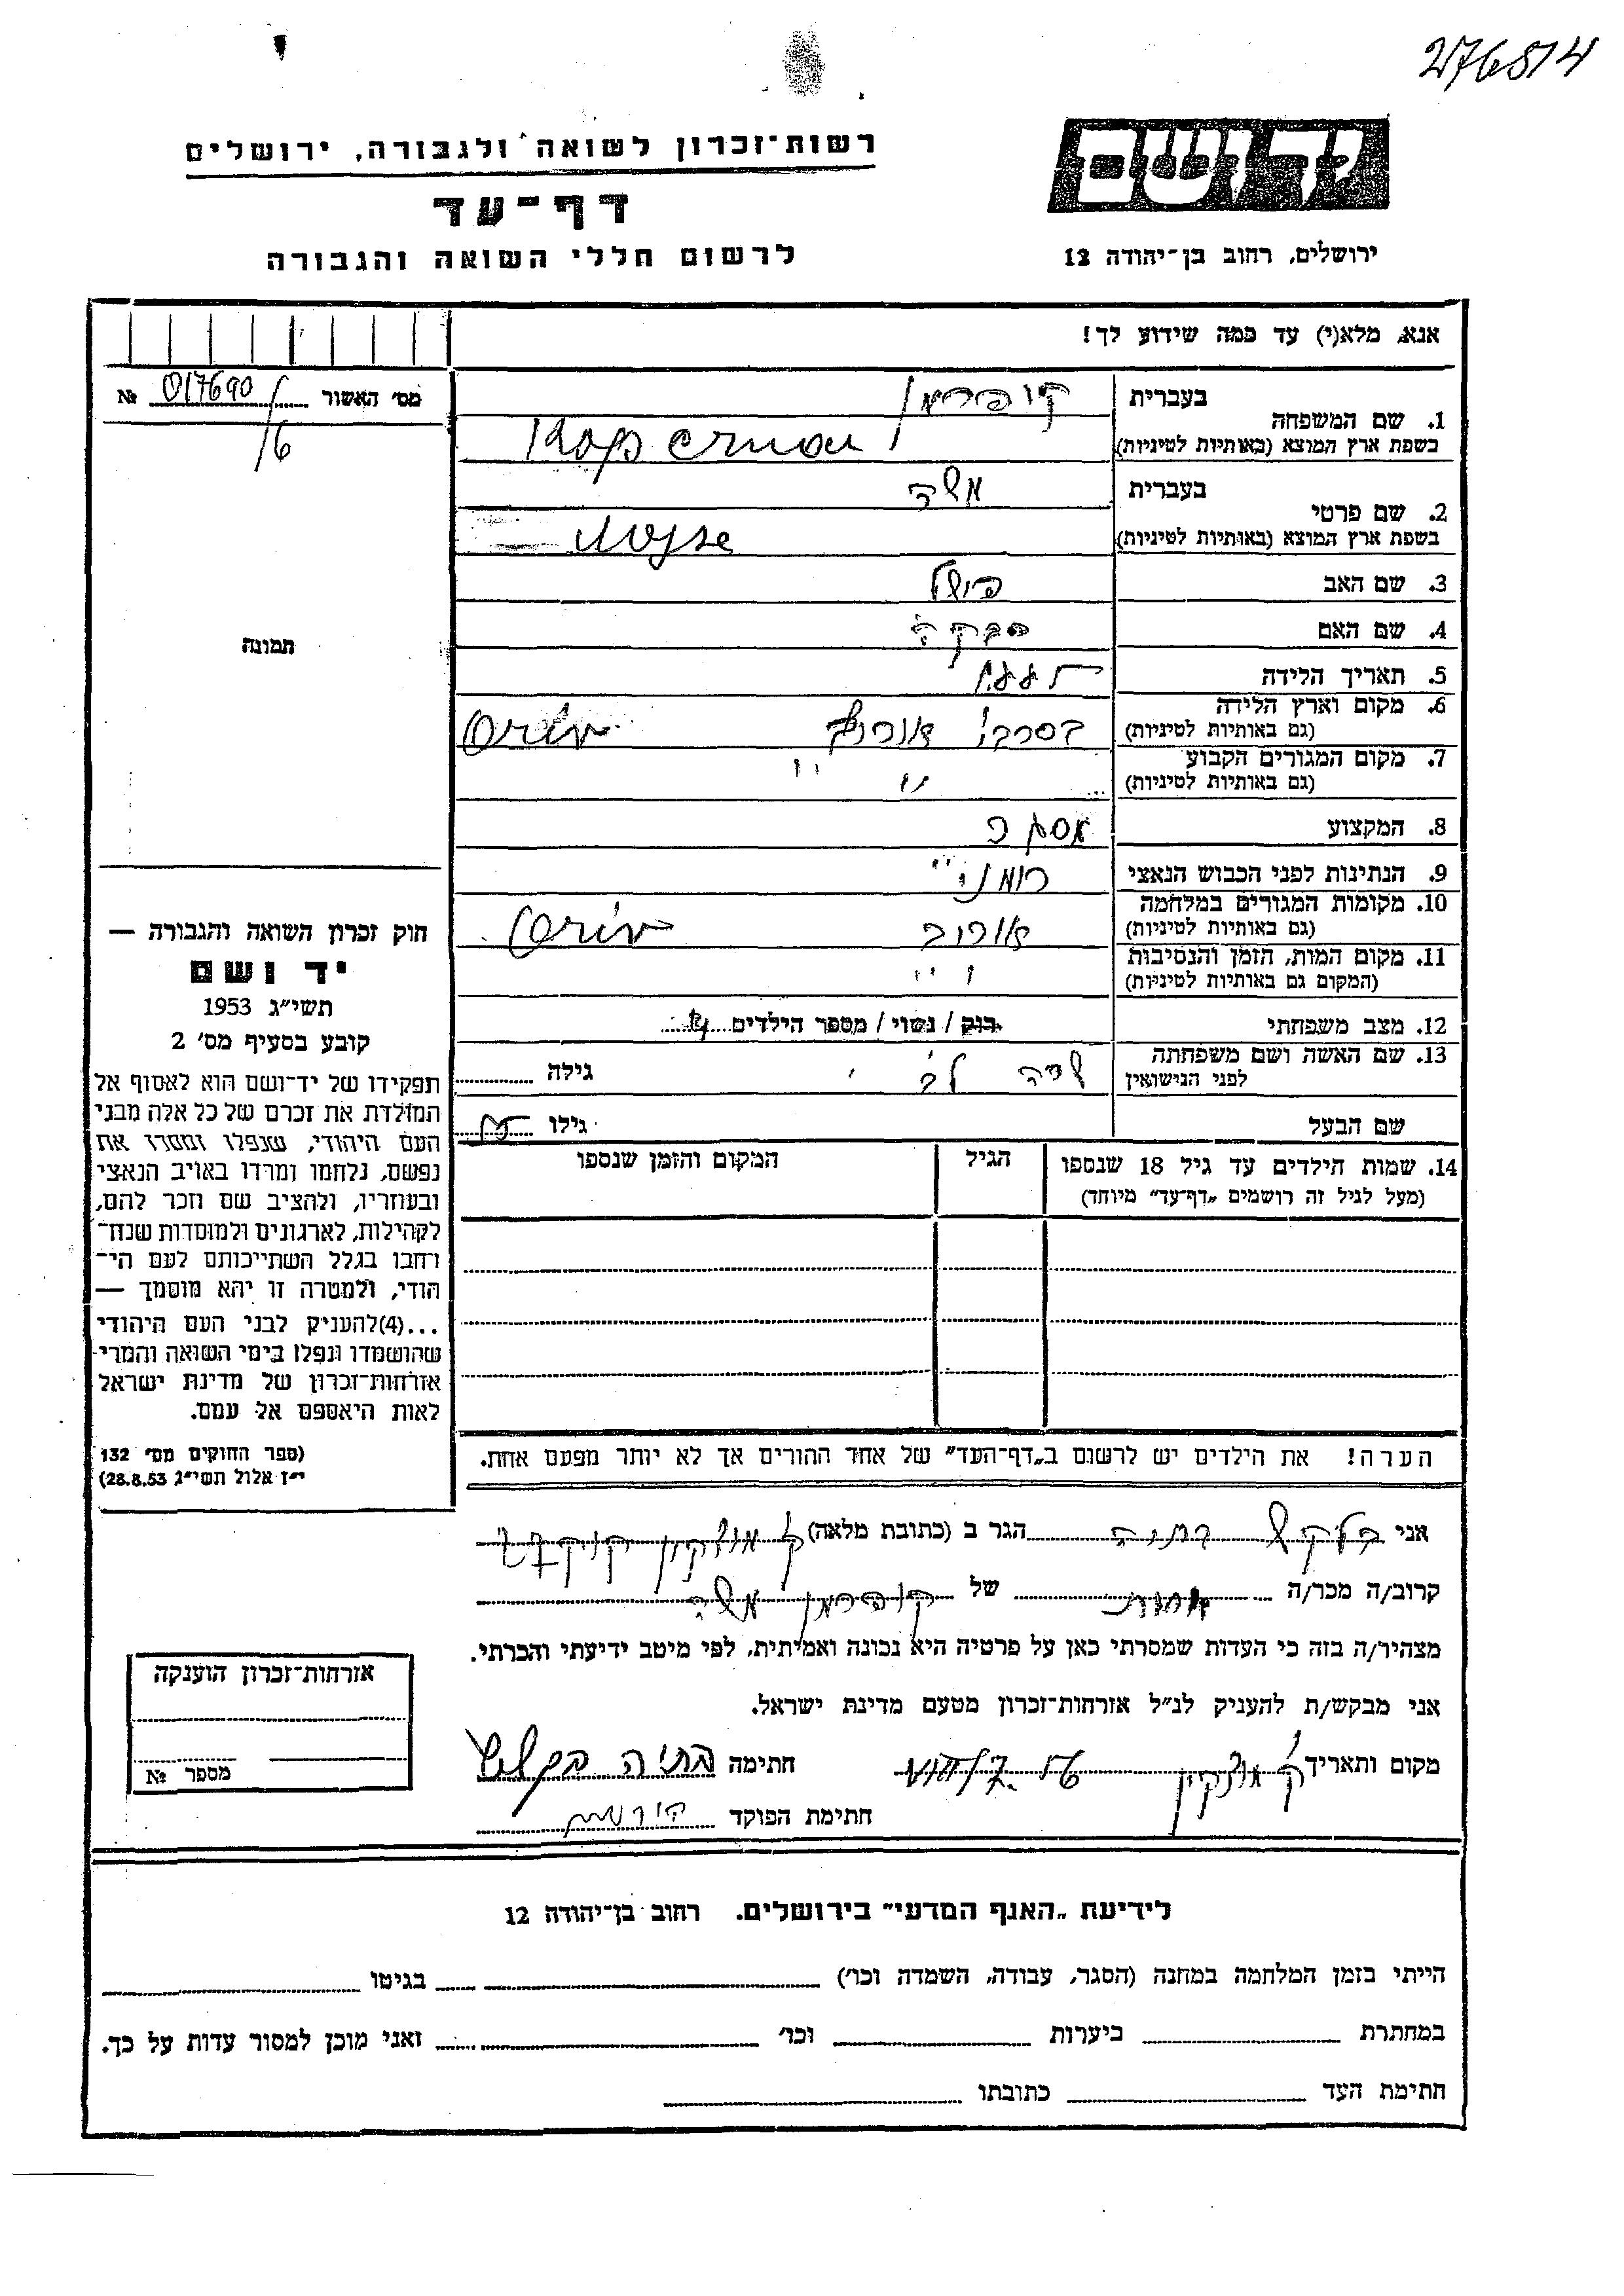 276814
יד ושם
רשות־זכרון לשואה ולגבורה, ירושלים
דף־עד
לרשום חללי השואה והגבורה
ירושלים, רחוב בן־יהודה 12
אנא, מלא(י) עד כמה שידוע לך!
מס׳ האשור № 017690
/6
1. שם המשפחה
בעברית קופרמן
בשפת ארץ המוצא (באותיות לטיניות) Kopermau
2. שם פרטי
בעברית משה
בשפת ארץ המוצא (באותיות לטיניות) Mojse
3. שם האב פישל
4. שם האם רבקה
5. תאריך הלידה
6. מקום וארץ הלידה
(גם באותיות לטיניות) Orśiv
7. מקום המגורים הקבוע
(גם באותיות לטיניות) " "
8. המקצוע
9. הנתינות לפני הכבוש הנאצי
10. מקומות המגורים במלחמה
(גם באותיות לטיניות) Orśiv
11. מקום המות, הזמן והנסיבות
(המקום גם באותיות לטיניות) "
12. מצב משפחתי רוק / נשוי / מספר הילדים
13. שם האשה ושם משפחתה
לפני הנישואין שרה גילה
שם הבעל גילו
14. שמות הילדים עד גיל 18 שנספו
(מעל לגיל זה רושמים „דף־עד״ מיוחד)
הגיל
המקום והזמן שנספו
הערה! את הילדים יש לרשום ב„דף־העד״ של אחד ההורים אך לא יותר מפעם אחת.
תמונה
חוק זכרון השואה והגבורה —
יד ושם
תשי״ג 1953
קובע בסעיף מס׳ 2
תפקידו של יד־ושם הוא לאסוף אל
המולדת את זכרם של כל אלה מבני
העם היהודי, שנפלו ומסרו את
נפשם, נלחמו ומרדו באויב הנאצי
ובעוזריו, ולהציב שם וזכר להם,
לקהילות, לארגונים ולמוסדות שנח־
רחבו בגלל השתייכותם לעם הי־
הודי, ולמטרה זו יהא מוסמך —
...(4)להעניק לבני העם היהודי
שהושמדו ונפלו בימי השואה והמרי
אזרחות־זכרון של מדינת ישראל
לאות היאספם אל עמם.
(ספר החוקים מס׳ 132
י״ז אלול תשי״ג 28.8.53)
אני הגר ב (כתובת מלאה) ק. מוצקין
קרוב/ה מכר/ה של קופרמן משה
מצהיר/ה בזה כי העדות שמסרתי כאן על פרטיה היא נכונה ואמיתית, לפי מיטב ידיעתי והכרתי.
אני מבקש/ת להעניק לנ״ל אזרחות־זכרון מטעם מדינת ישראל.
מקום ותאריך ק. מוצקין חתימה
חתימת הפוקד
אזרחות־זכרון הוענקה
מספר №
לידיעת „האגף המדעי״ בירושלים. רחוב בן־יהודה 12
הייתי בזמן המלחמה במחנה (הסגר, עבודה, השמדה וכו׳) בגיטו
במחתרת ביערות וכו׳ ואני מוכן למסור עדות על כך.
חתימת העד כתובתו